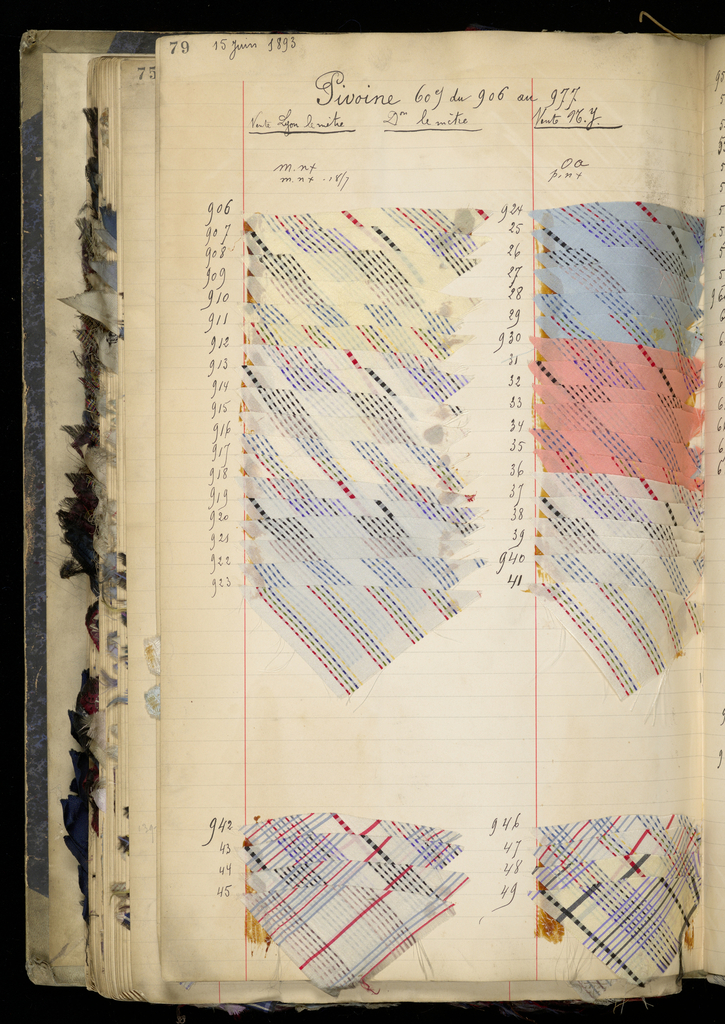 79 15 Juin 1893
75
Pivoine 609 du 906 au 977
Vente Lyon le mètre Dm le mètre Vente N.Y.
m.nx Oa
m.nx - 18/7 p.nx
906 924
907 25
908 26
909 27
910 28
911 29
912 930
913 31
914 32
915 33
916 34
917 35
918 36
919 37
920 38
921 39
922 940
923 41
942 946
43 47
44 48
45 49